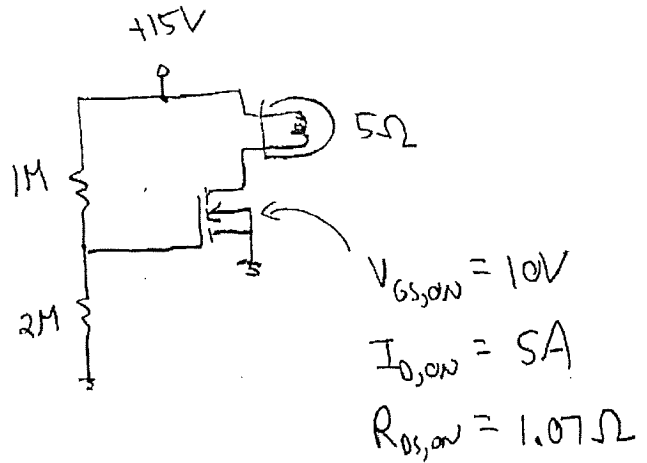 +15V
5Ω
1M
2M
V_GS,ON = 10V
I_D,ON = 5A
R_DS,ON = 1.07Ω